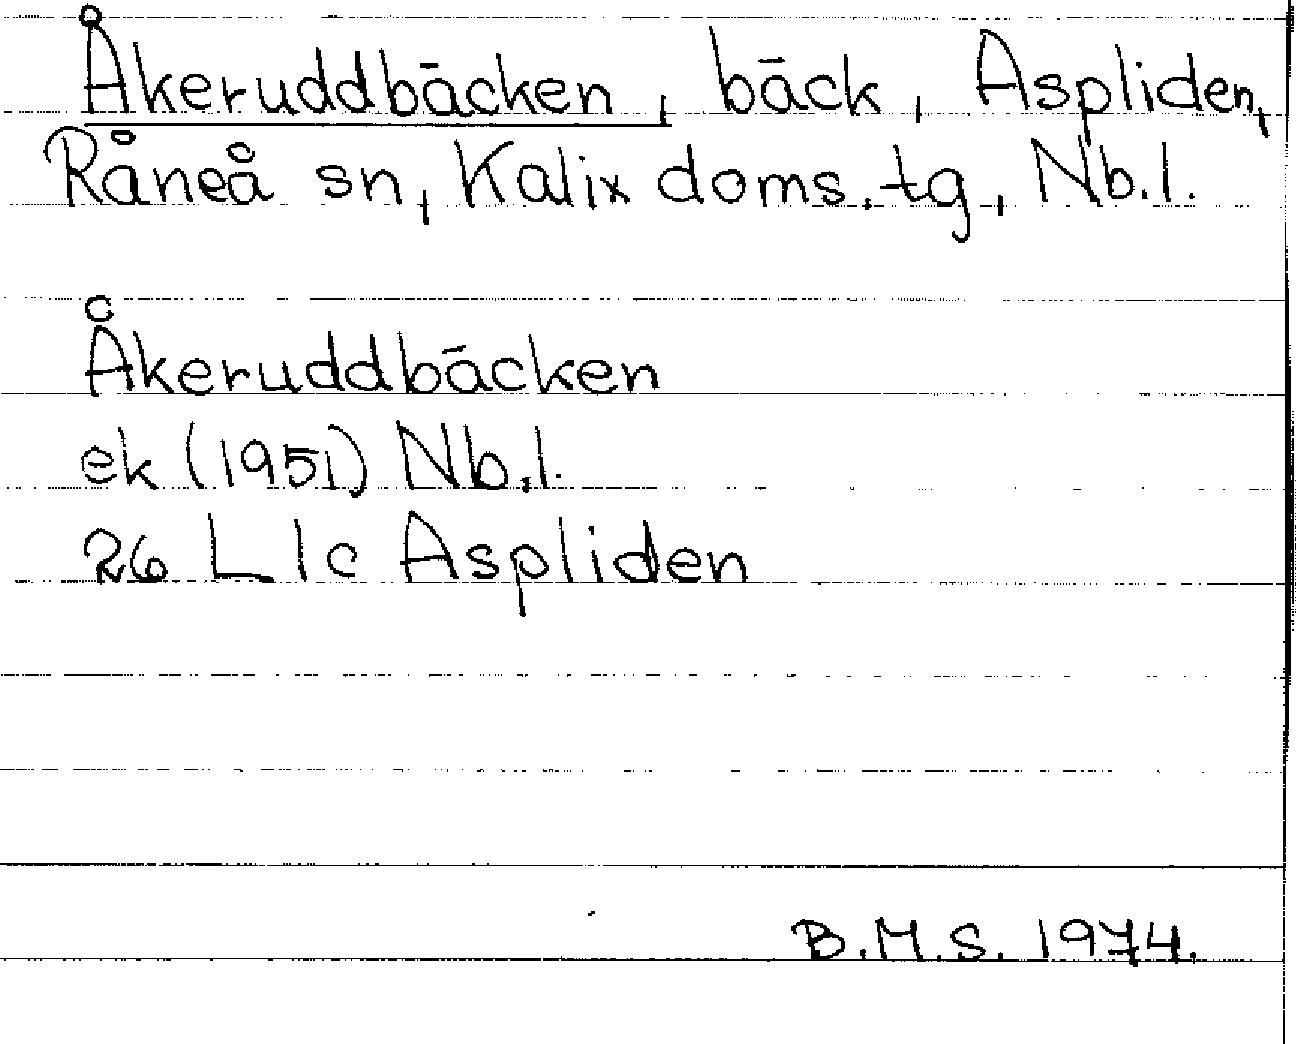 Åkeruddbäcken, bäck, Aspliden,
Råneå sn, Kalix doms.tg, Nb.l.
Åkeruddbäcken
ek (1951) Nb.l.
26 L 1c Aspliden
B.M.S. 1974.